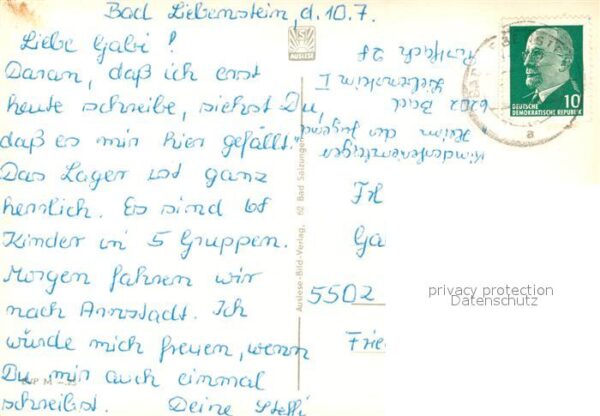 Bad Liebenstein, d. 10.7.
Liebe Gabi!
Daran, daß ich erst
heute schreibe, siehst Du,
daß es mir hier gefällt.
Das Lager ist ganz
herrlich. Es sind 68
Kinder in 5 Gruppen.
Morgen fahren wir
nach Arnstadt. Ich
würde mich freuen, wenn
Du mir auch einmal
schreibst. Deine Steffi
AUSLESE
Auslese-Bild-Verlag, 62 Bad Salzungen
Kinderferienlager
Heim der Jugend
6202 Bad
Liebenstein I
Postfach 28
DEUTSCHE
DEMOKRATISCHE REPUBLIK
10
a
Frl
Ga
5502
Frie
privacy protection
Datenschutz